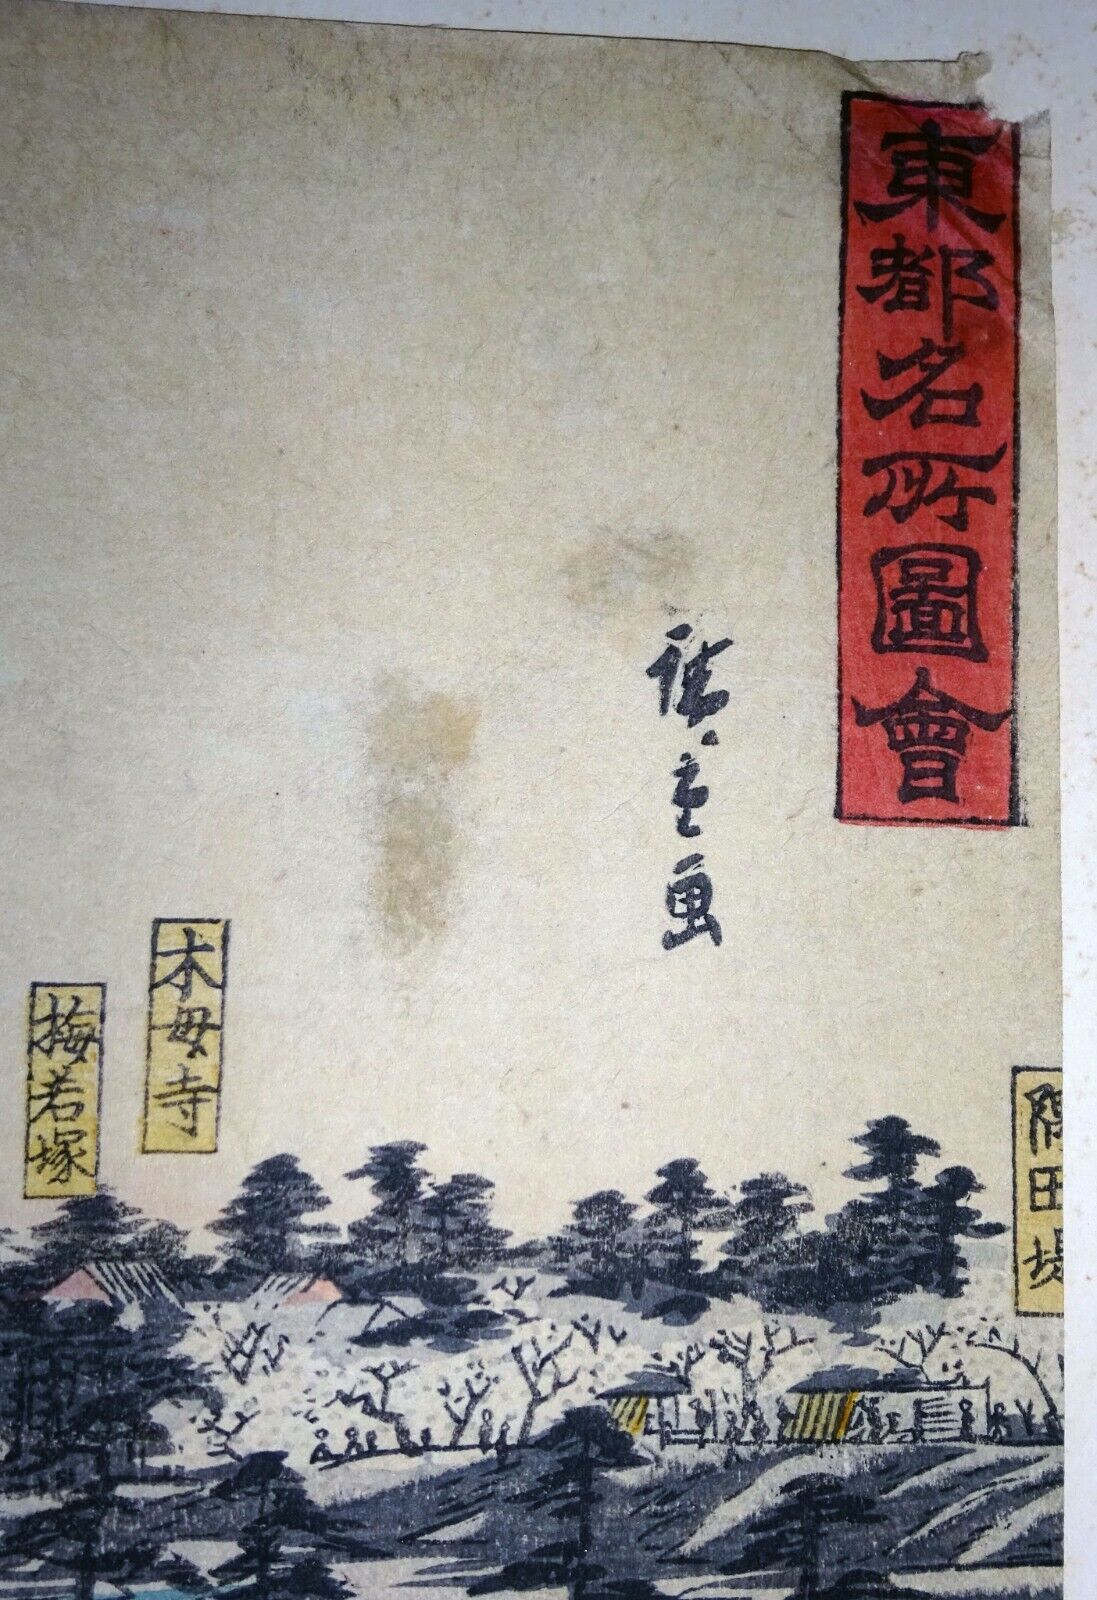 東都名所圖會
廣重画
隅田堤
木母寺
梅若塚